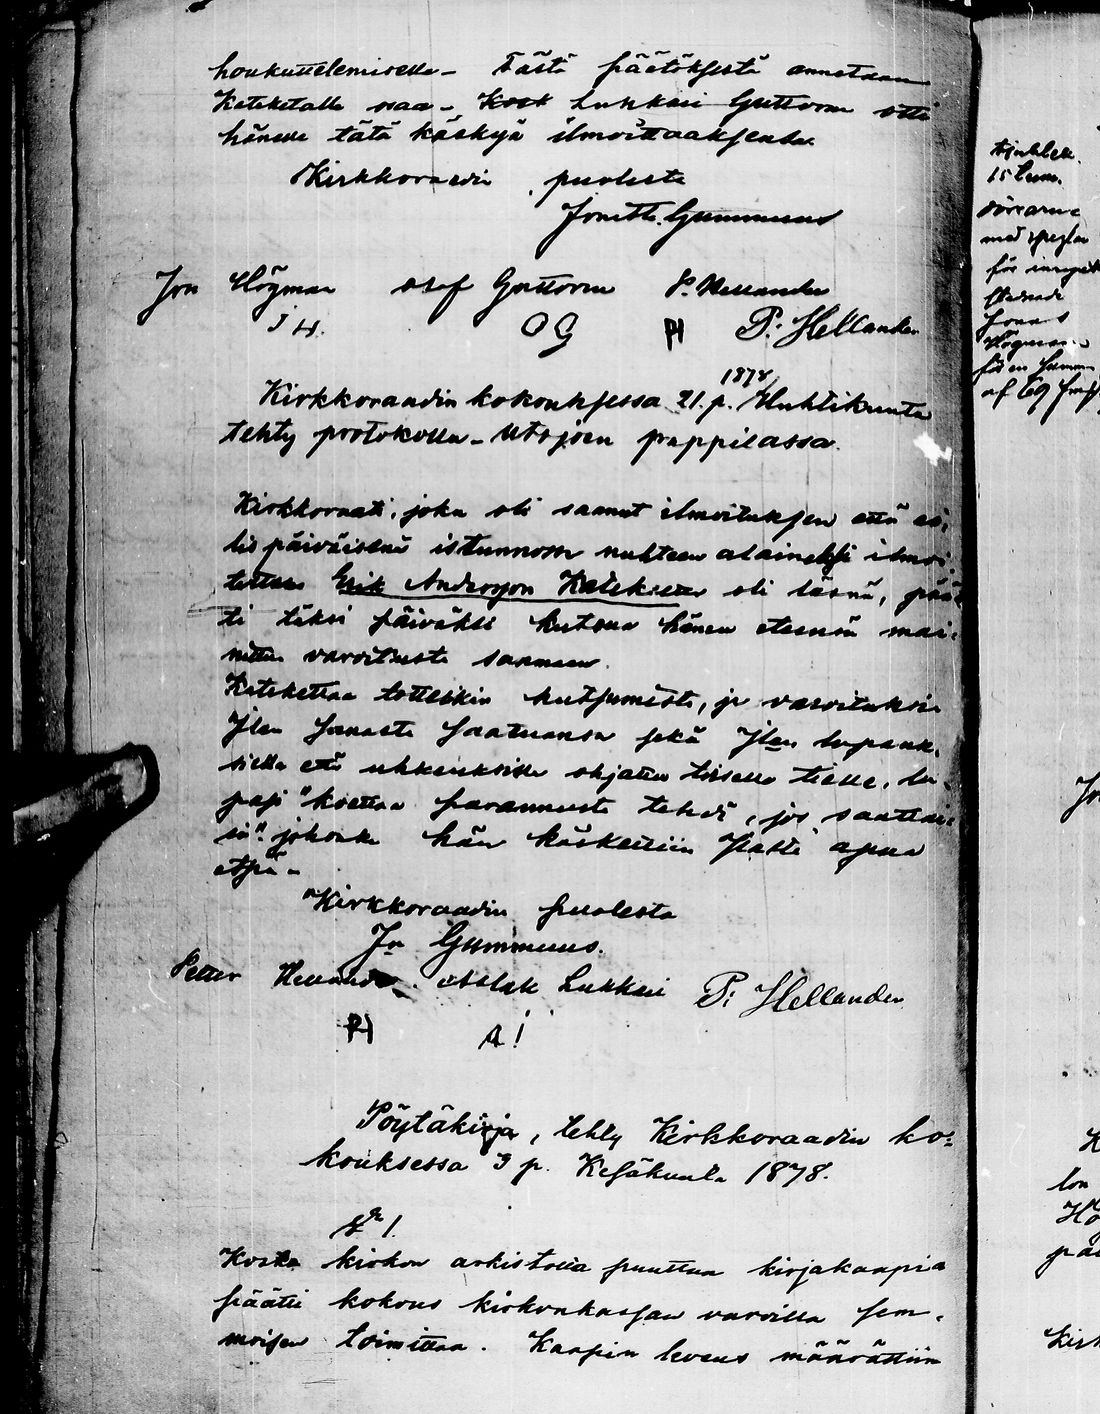 houkuttelemisella – Tästä päätöksestä annetaan
Keteketalle osaa – Lukkari Guttorm otti
hänelle tätä käskyä ilmoittaaksensa.
Kirkkoraadin puolesta
Jon Högman Olof Guttorm P. Hellander
J H. O G PH P. Hellander
1878
Kirkkoraadin kokouksessa 21. p. Huhtikuuta
tehty protokolla – Utsjoen pappilassa.
Kirkkoraati, joka oli saanut ilmoituksen että
päiväisessä istunnossa nuhteen alaiseksi ilmoi-
tettu Erik Andersson Keteketta oli läsnä, päät
ti täksi päiväksi kutsua hänen eteensä mai-
nittua varoitusta saamaan.
Keteketta tottelikin kutsumista, ja varoituksia
Jlan sanasta saatuansa sekä lupauk-
silla että uhkauksilla ohjattu toiselle tielle, lu-
pasi "koettaa parannusta tehdä, jos saattai-
si" johonka hän käskettiin apua
etsiä –
Kirkkoraadin puolesta
Gummerus.
Petter Hellander. Aslak Lukkari P. Hellander
PH A L
Pöytäkirja, tehty Kirkkoraadin ko-
kouksessa 3 p. Kesäkuuta 1878.
§ 1.
Koska kirkon arkistolta puuttuu kirjakaapia
päätti kokous kirkonkassan varoilla sem-
moisen toimittaa. Kaapin leveus määrättiin
15 tum.
med speglar
Jonas
Högman
för en summa
af 69